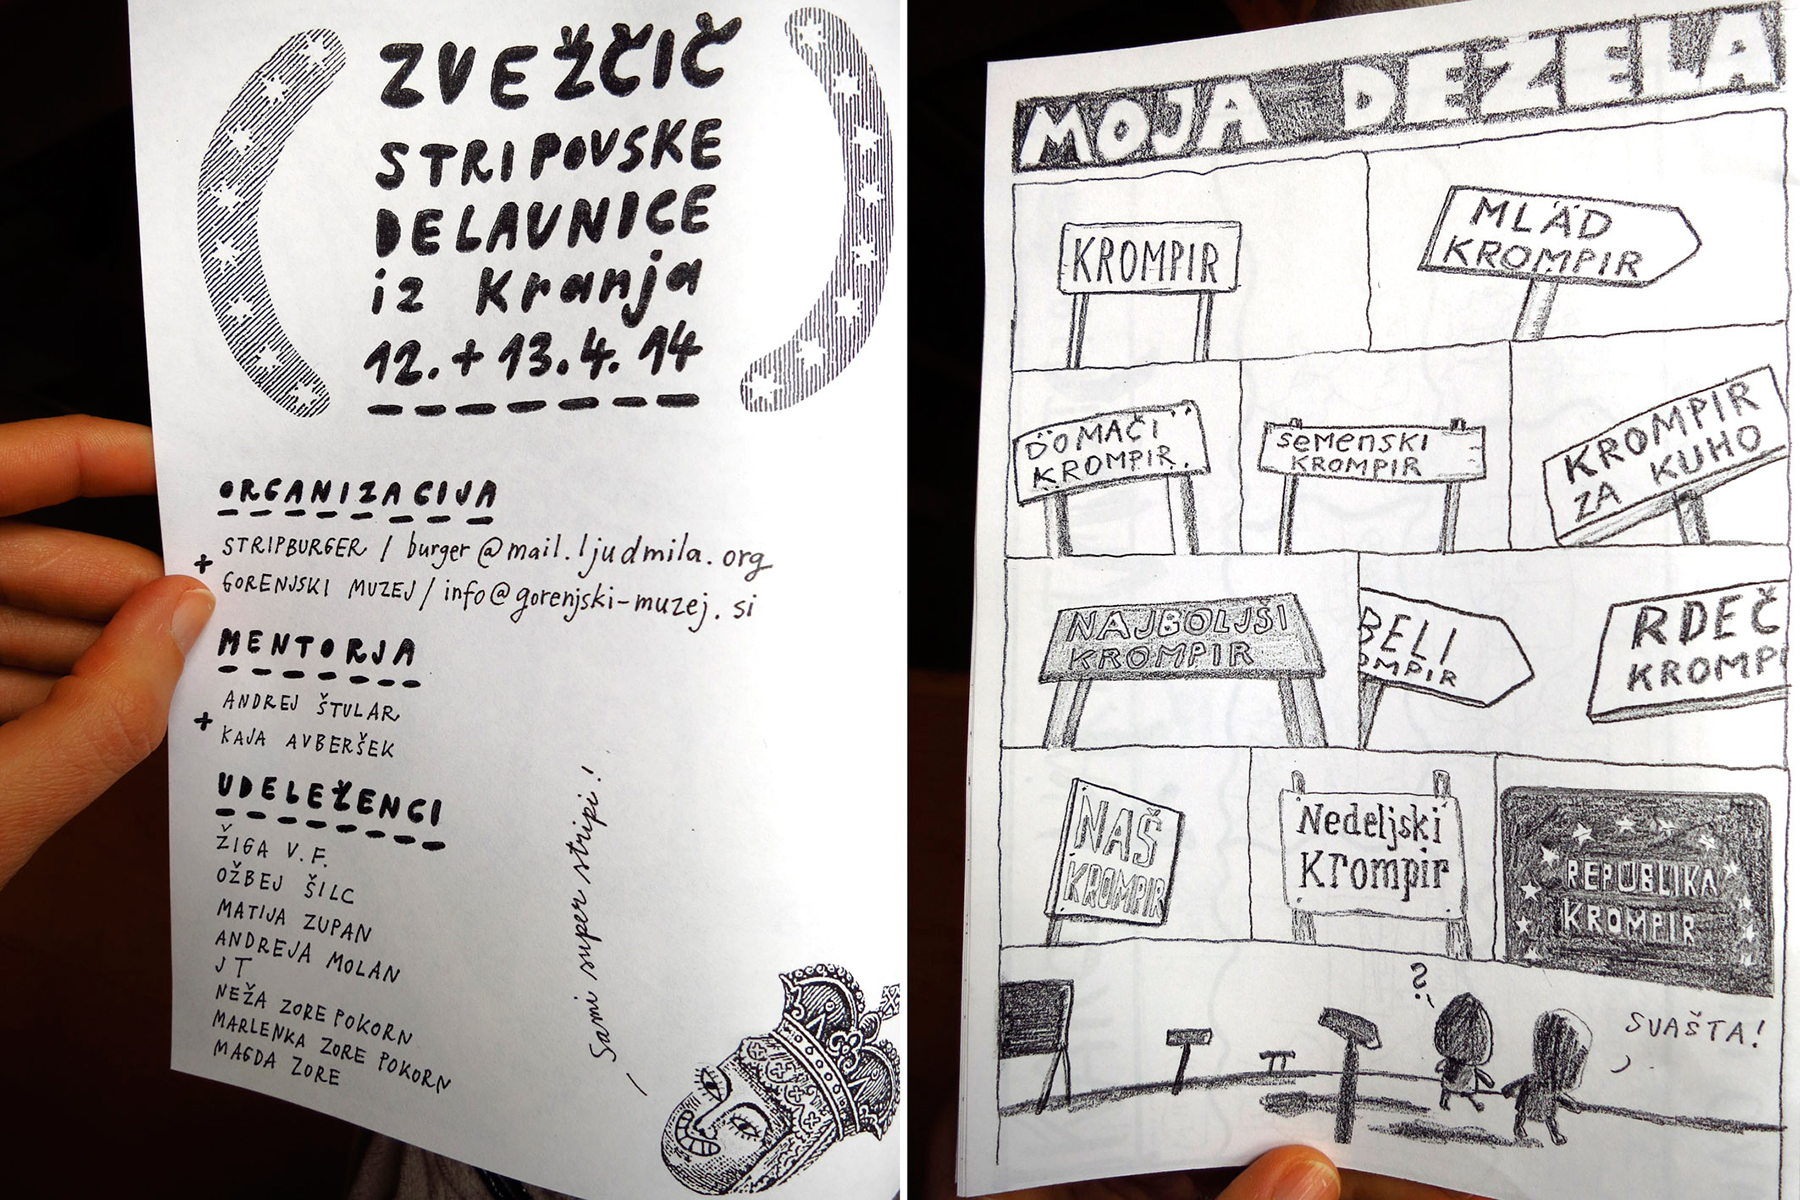 ZVEŽČIČ
STRIPOVSKE
DELAVNICE
iz Kranja
12. + 13. 4. 14
ORGANIZACIJA
STRIPBURGER / burger@mail.ljudmila.org
+
GORENJSKI MUZEJ / info@gorenjski-muzej.si
MENTORJA
ANDREJ ŠTULAR
+
KAJA AVBERŠEK
UDELEŽENCI
ŽIGA V. F.
OŽBEJ ŠILC
MATIJA ZUPAN
ANDREJA MOLAN
J T
NEŽA ZORE POKORN
MARLENKA ZORE POKORN
MAGDA ZORE
Sami super stripi!
MOJA DEŽELA
KROMPIR
MLAD
KROMPIR
DOMAČI
KROMPIR
semenski
KROMPIR
KROMPIR
ZA KUHO
NAJBOLJŠI
KROMPIR
BELI
OMPIR
RDEČ
KROMPI
NAŠ
KROMPIR
Nedeljski
Krompir
REPUBLIKA
KROMPIR
?
SVAŠTA!